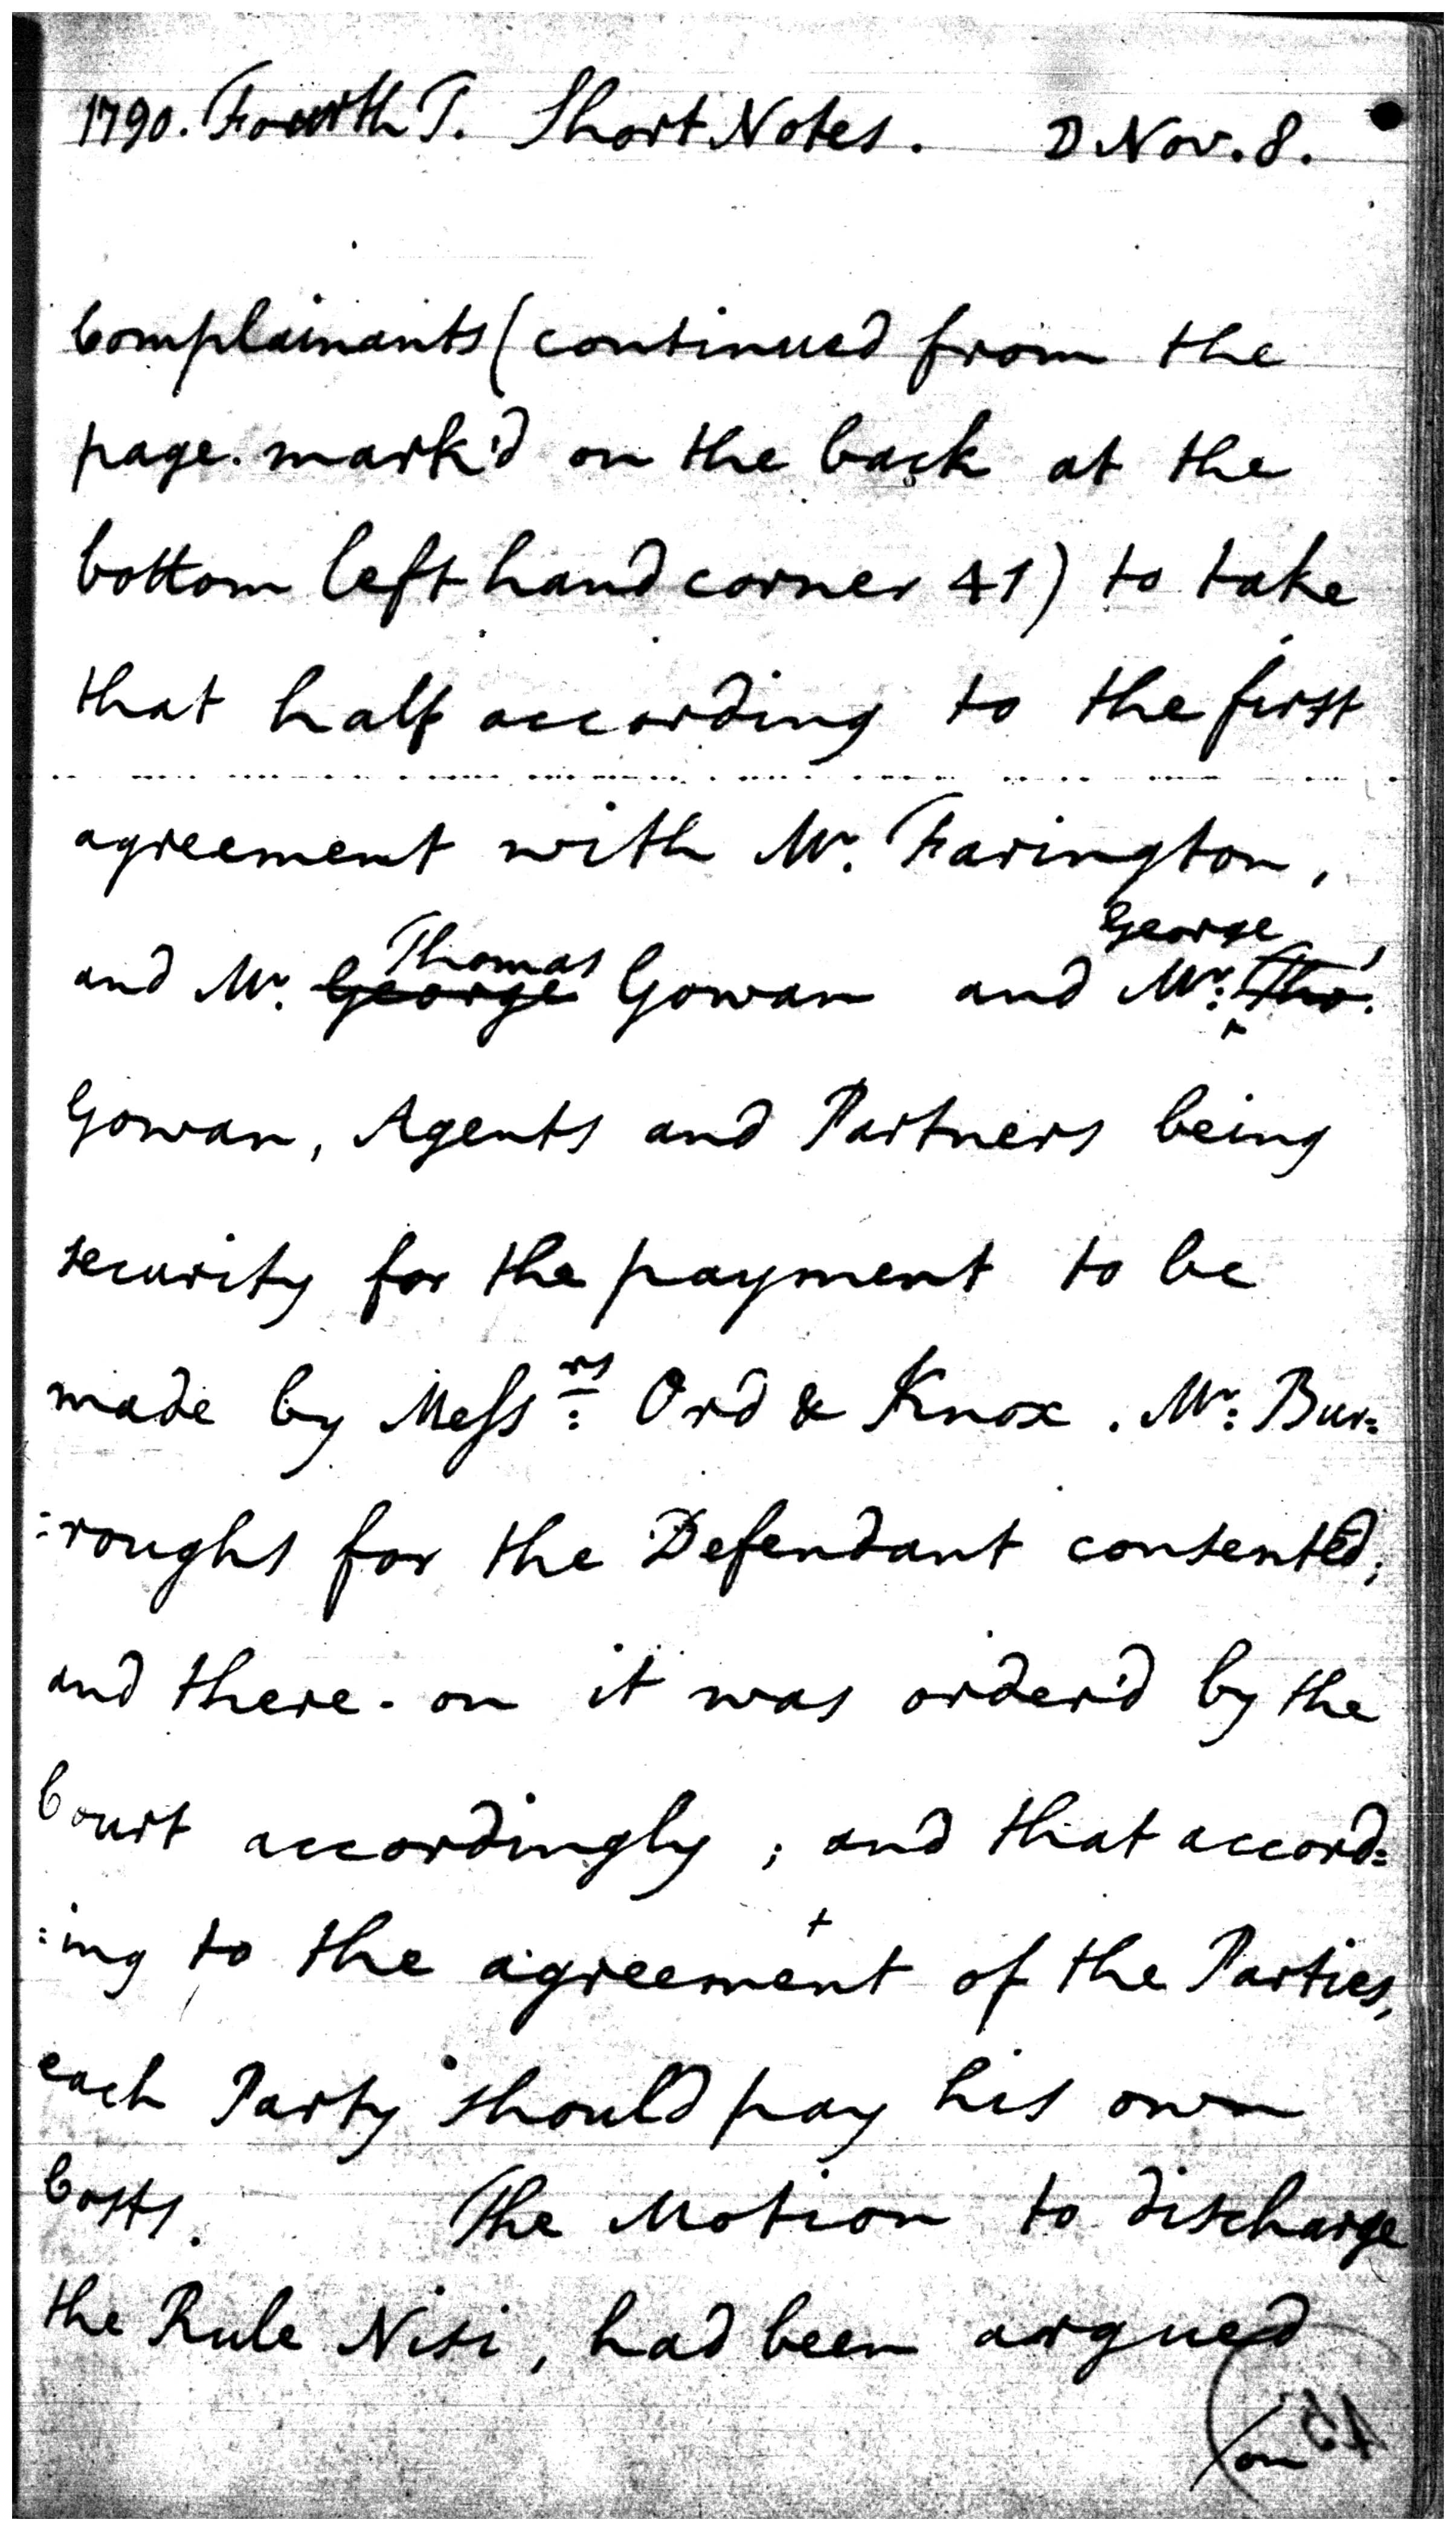 1790. Fourth T. Short Notes. D Nov. 8.
Complainants (continued from the
page. mark'd on the back at the
bottom left hand corner 41) to take
that half according to the first
agreement with Mr. Farington,
and Mr. George Thomas Gowan and Mr: Tho. George
Gowan, Agents and Partners being
security for the payment to be
made by Messrs: Ord & Knox. Mr: Bur=
:roughs for the Defendant consented;
and there-on it was order'd by the
Court accordingly; and that accord=
:ing to the agreement + of the Parties,
each Party should pay his own
Costs. The Motion to discharge
the Rule Nisi, had been argued
/on
45